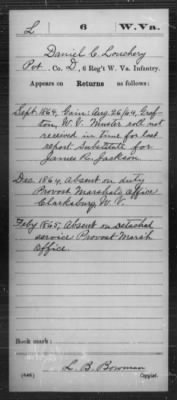 L | 6 | W. Va.
Daniel C. Louchery
Pvt., Co. D, 6 Reg't W. Va. Infantry.
Appears on Returns as follows:
Sept. 1864, Gain: Aug. 26/64, Graf-
ton, W. V. Muster roll not
received in time for last
report. Substitute for
James R. Jackson.
Dec. 1864, Absent on duty
Provost Marshals office
Clarksburg, W. V.
Feby 1865, Absent on detached
service Provost Marsh
Office.
Book mark:
(646)
L. B. Bowman
Copyist.